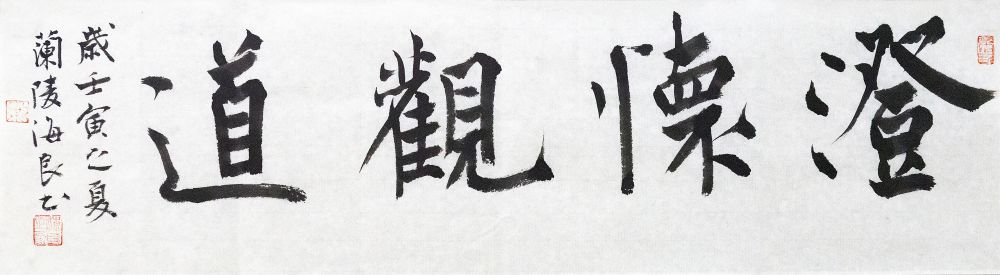 澄懷觀道
歲壬寅之夏
蘭陵海良书